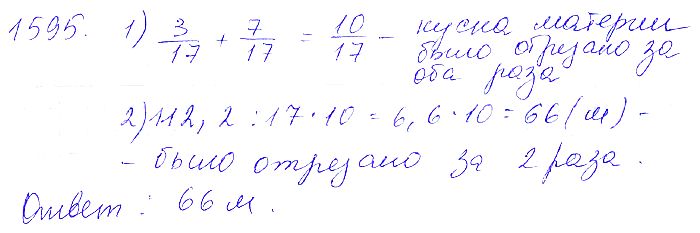 1595. 1) 3/17 + 7/17 = 10/17 - куска материи
было отрезано за
оба раза
2) 112,2 : 17 · 10 = 6,6 · 10 = 66 (м) -
- было отрезано за 2 раза.
Ответ: 66 м.